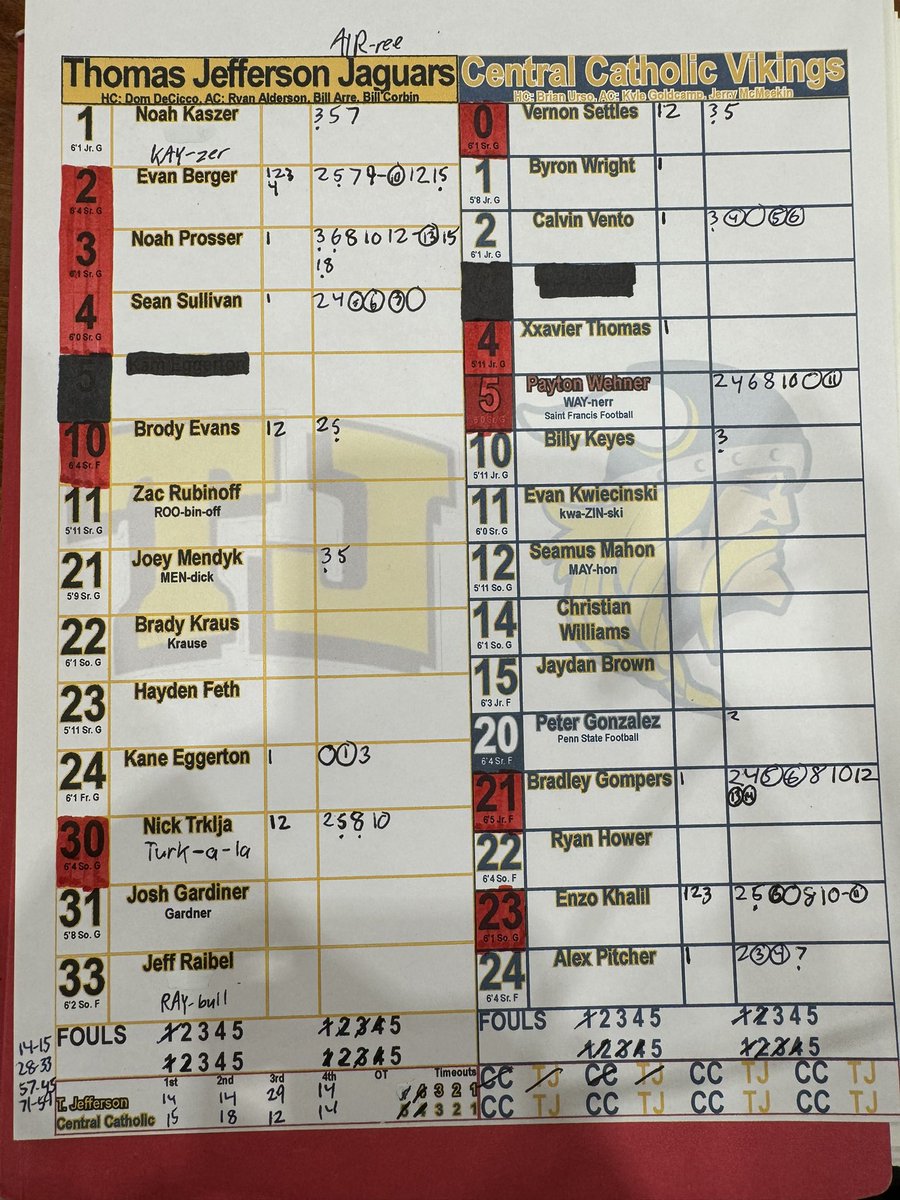 AIR-ree
Thomas Jefferson Jaguars
HC: Dom DeCicco, AC: Ryan Alderson, Bill Arre, Bill Corbin
1 Noah Kaszer 3 5 7
6'1 Jr. G KAY-zer
2 Evan Berger 1 2 3 4 2 5 7 9-10 12 15
6'4 Sr. G
3 Noah Prosser 1 3 6 8 10 12-13 15 18
6'1 Sr. G
4 Sean Sullivan 1 2 4
6'0 Sr. G
5
10 Brody Evans 12 2 5
6'4 Sr. F
11 Zac Rubinoff
5'11 Sr. G ROO-bin-off
21 Joey Mendyk 3 5
5'9 Sr. G MEN-dick
22 Brady Kraus
6'1 So. G Krause
23 Hayden Feth
5'11 Sr. G
24 Kane Eggerton 1 1 3
6'1 Fr. G
30 Nick Trklja 12 2 5 8 10
6'4 So. G Turk-a-la
31 Josh Gardiner
5'8 So. G Gardner
33 Jeff Raibel
6'2 So. F RAY-bull
FOULS 1 2 3 4 5 1 2 3 4 5
1 2 3 4 5 1 2 3 4 5
14-15
28-33
57-45
71-59
1st 2nd 3rd 4th OT Timeouts
T. Jefferson 14 14 29 14 3 2 1
Central Catholic 15 18 12 14 3 2 1
Central Catholic Vikings
HC: Brian Urso, AC: Kyle Goldcamp, Jerry McMeekin
0 Vernon Settles 12 3 5
6'1 Sr. G
1 Byron Wright 1
5'8 Jr. G
2 Calvin Vento 1 3 4 5 6
6'1 Jr. G
4 Xxavier Thomas 1
5'11 Jr. G
5 Payton Wehner 2 4 6 8 10 11
6'0 Sr. G WAY-nerr
Saint Francis Football
10 Billy Keyes 3
5'11 Jr. G
11 Evan Kwiecinski
6'0 Sr. G kwa-ZIN-ski
12 Seamus Mahon
5'11 So. G MAY-hon
14 Christian Williams
6'1 So. G
15 Jaydan Brown
6'3 Jr. F
20 Peter Gonzalez 2
6'4 Sr. F Penn State Football
21 Bradley Gompers 1 2 4 5 6 8 10 12 13 14
6'5 Jr. F
22 Ryan Hower
6'4 So. F
23 Enzo Khalil 123 2 5 6 8 10-11
6'1 So. G
24 Alex Pitcher 1 2 3 4 7
6'4 Sr. F
FOULS 1 2 3 4 5 1 2 3 4 5
1 2 3 4 5 1 2 3 4 5
CC TJ CC TJ CC TJ CC TJ
CC TJ CC TJ CC TJ CC TJ
TJ